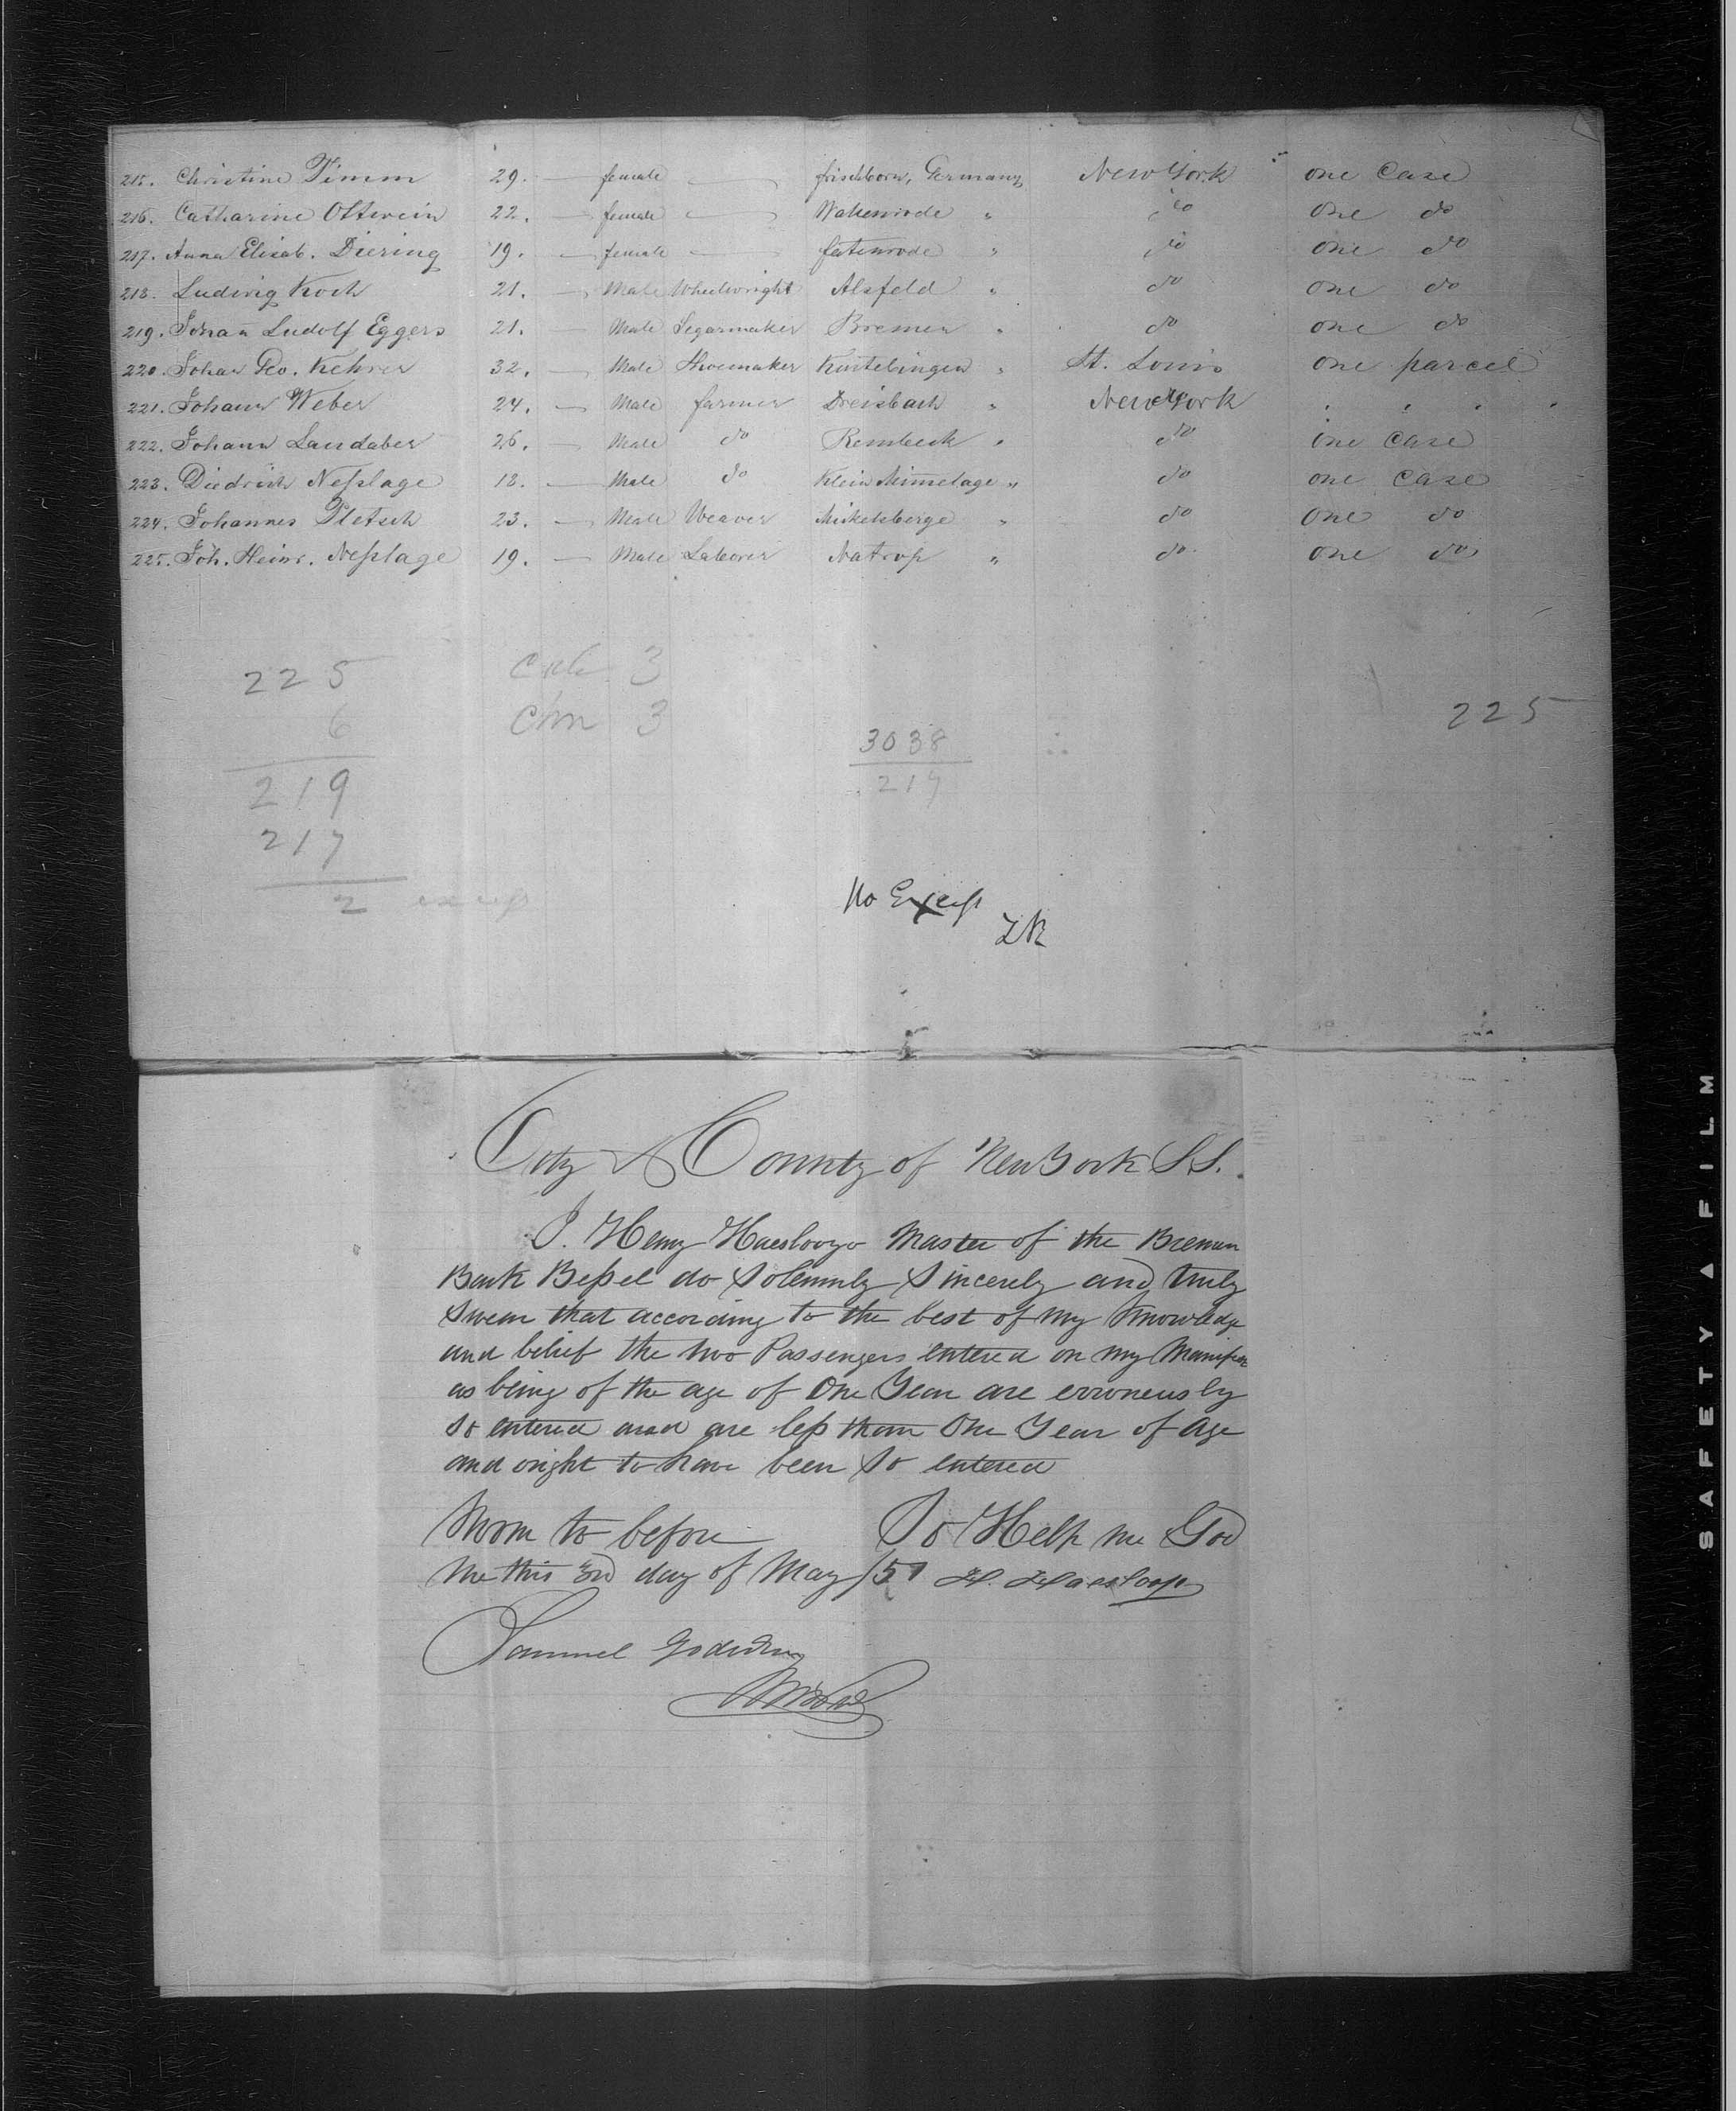 215. Christine Timm 29. — female — frischborn, Germany New York one Case
216. Catharine Ottwein 22. — female — Wallenrode " do one do
217. Anna Elisab. Diering 19. — female — " do one do
218. Ludwig Koch 21. — Male Wheelwright Alsfeld " do one do
219. Johan Ludolf Eggers 21. — Male Segarmaker Bremen " do one do
220. Johan Geo. Kehrer 32. — Male Shoemaker " St. Louis one parcel
221. Johann Weber 24. — Male farmer Dreisbach " New York
222. Johann Landaber 26. — Male do Rembeck " do one Case
223. Diedrich Neßlage 18. — Male do Klein Mimelage " do one Case
224. Johannes Pletsch 23. — Male Weaver " do one do
225. Joh. Heinr. Neßlage 19. — Male Laborer Natrop " do one do
225 3
6 3
225
3038
219
219
217
2 excess
No Excess
City & County of New York S.S.
I. Henry Haesloop Master of the Bremen
Bark Beßel do Solemnly Sincerely and truly
Swear that according to the best of my Knowledge
and belief the two Passengers entered on my Manifest
as being of the age of One Year are erroneusly
so entered and are leß than One Year of Age
and ought to have been so entered
Sworn to before So Help me God
me this 3rd day of May /51 H. Haesloop
Samuel
SAFETY ▲ FILM